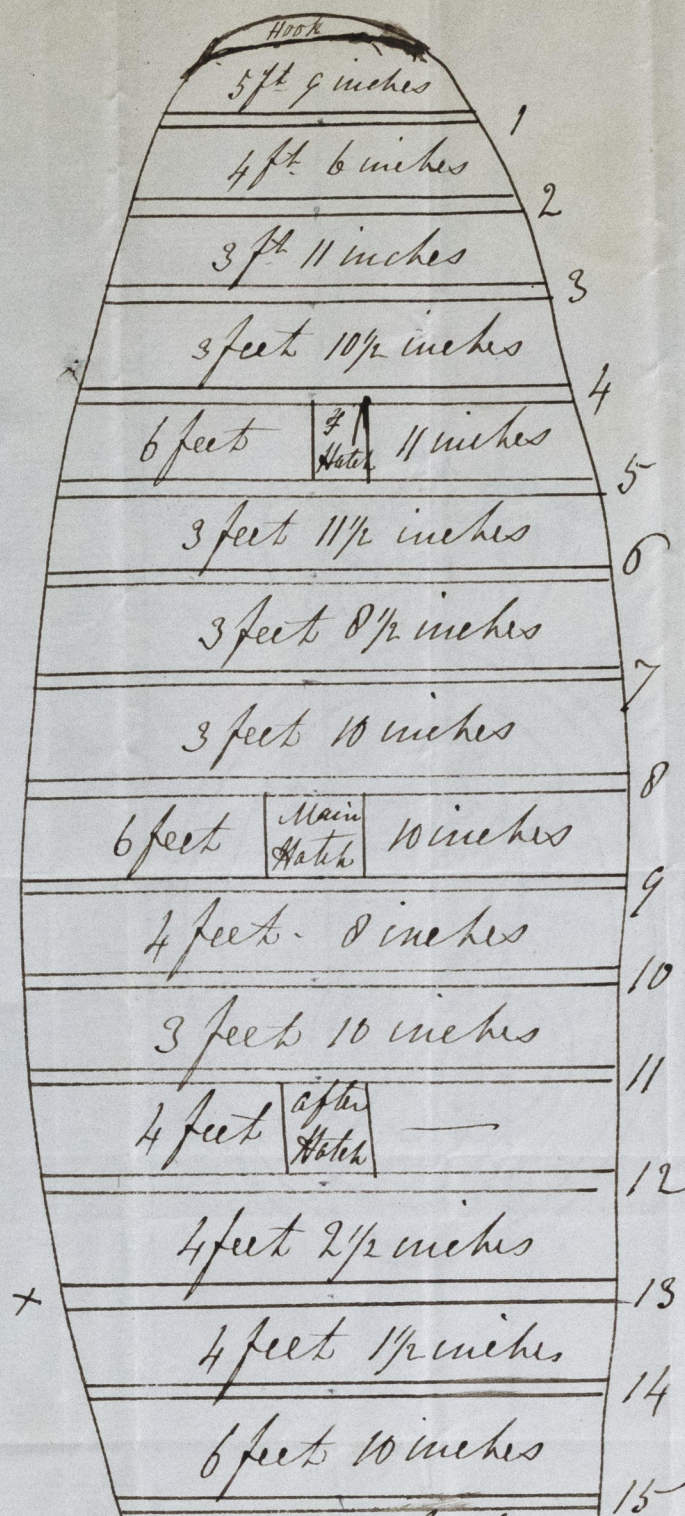 Hook
5 ft 9 inches
1
4 ft 6 inches
2
3 ft 11 inches
3
3 feet 10 1/2 inches
4
6 feet Hatch 11 inches
5
3 feet 11 1/2 inches
6
3 feet 8 1/2 inches
7
3 feet 10 inches
8
6 feet Main Hatch 10 inches
9
4 feet - 8 inches
10
3 feet 10 inches
11
4 feet after Hatch —
12
4 feet 2 1/2 inches
x 13
4 feet 1 1/2 inches
14
6 feet 10 inches
15